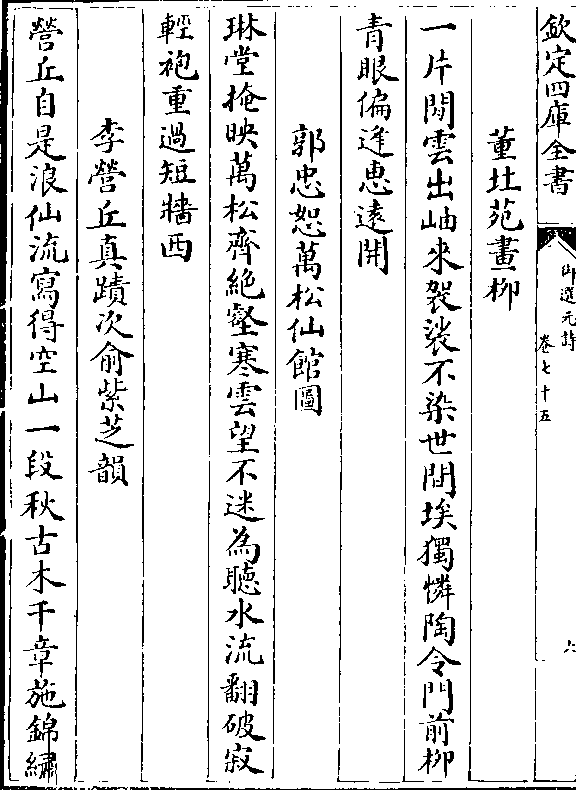 欽定四庫全書
御選元詩
卷七十五
六
董北苑畫柳
一片閒雲出岫來袈裟不染世間埃獨憐陶令門前柳
青眼偏逢惠遠開
郭忠恕萬松仙館圖
琳堂掩映萬松齊絶壑寒雲望不迷為聽水流翻破寂
輕袍重過短牆西
李營丘真蹟次俞紫芝韻
營丘自是浪仙流寫得空山一段秋古木千章施錦繡